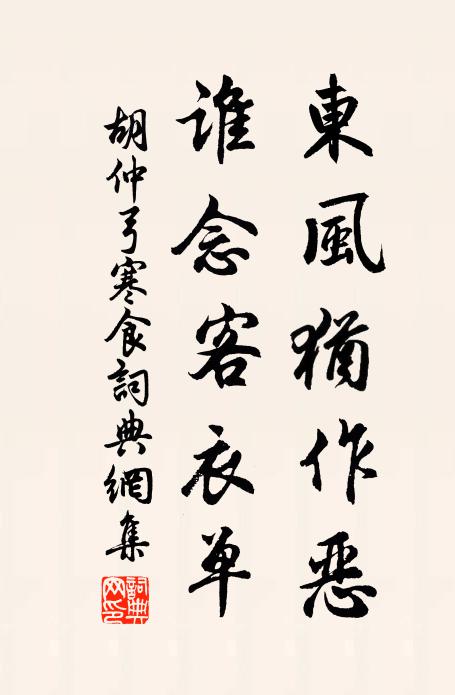 東風猶作惡
誰念客衣單
胡仲弓寒食詞典網集
詞典網印